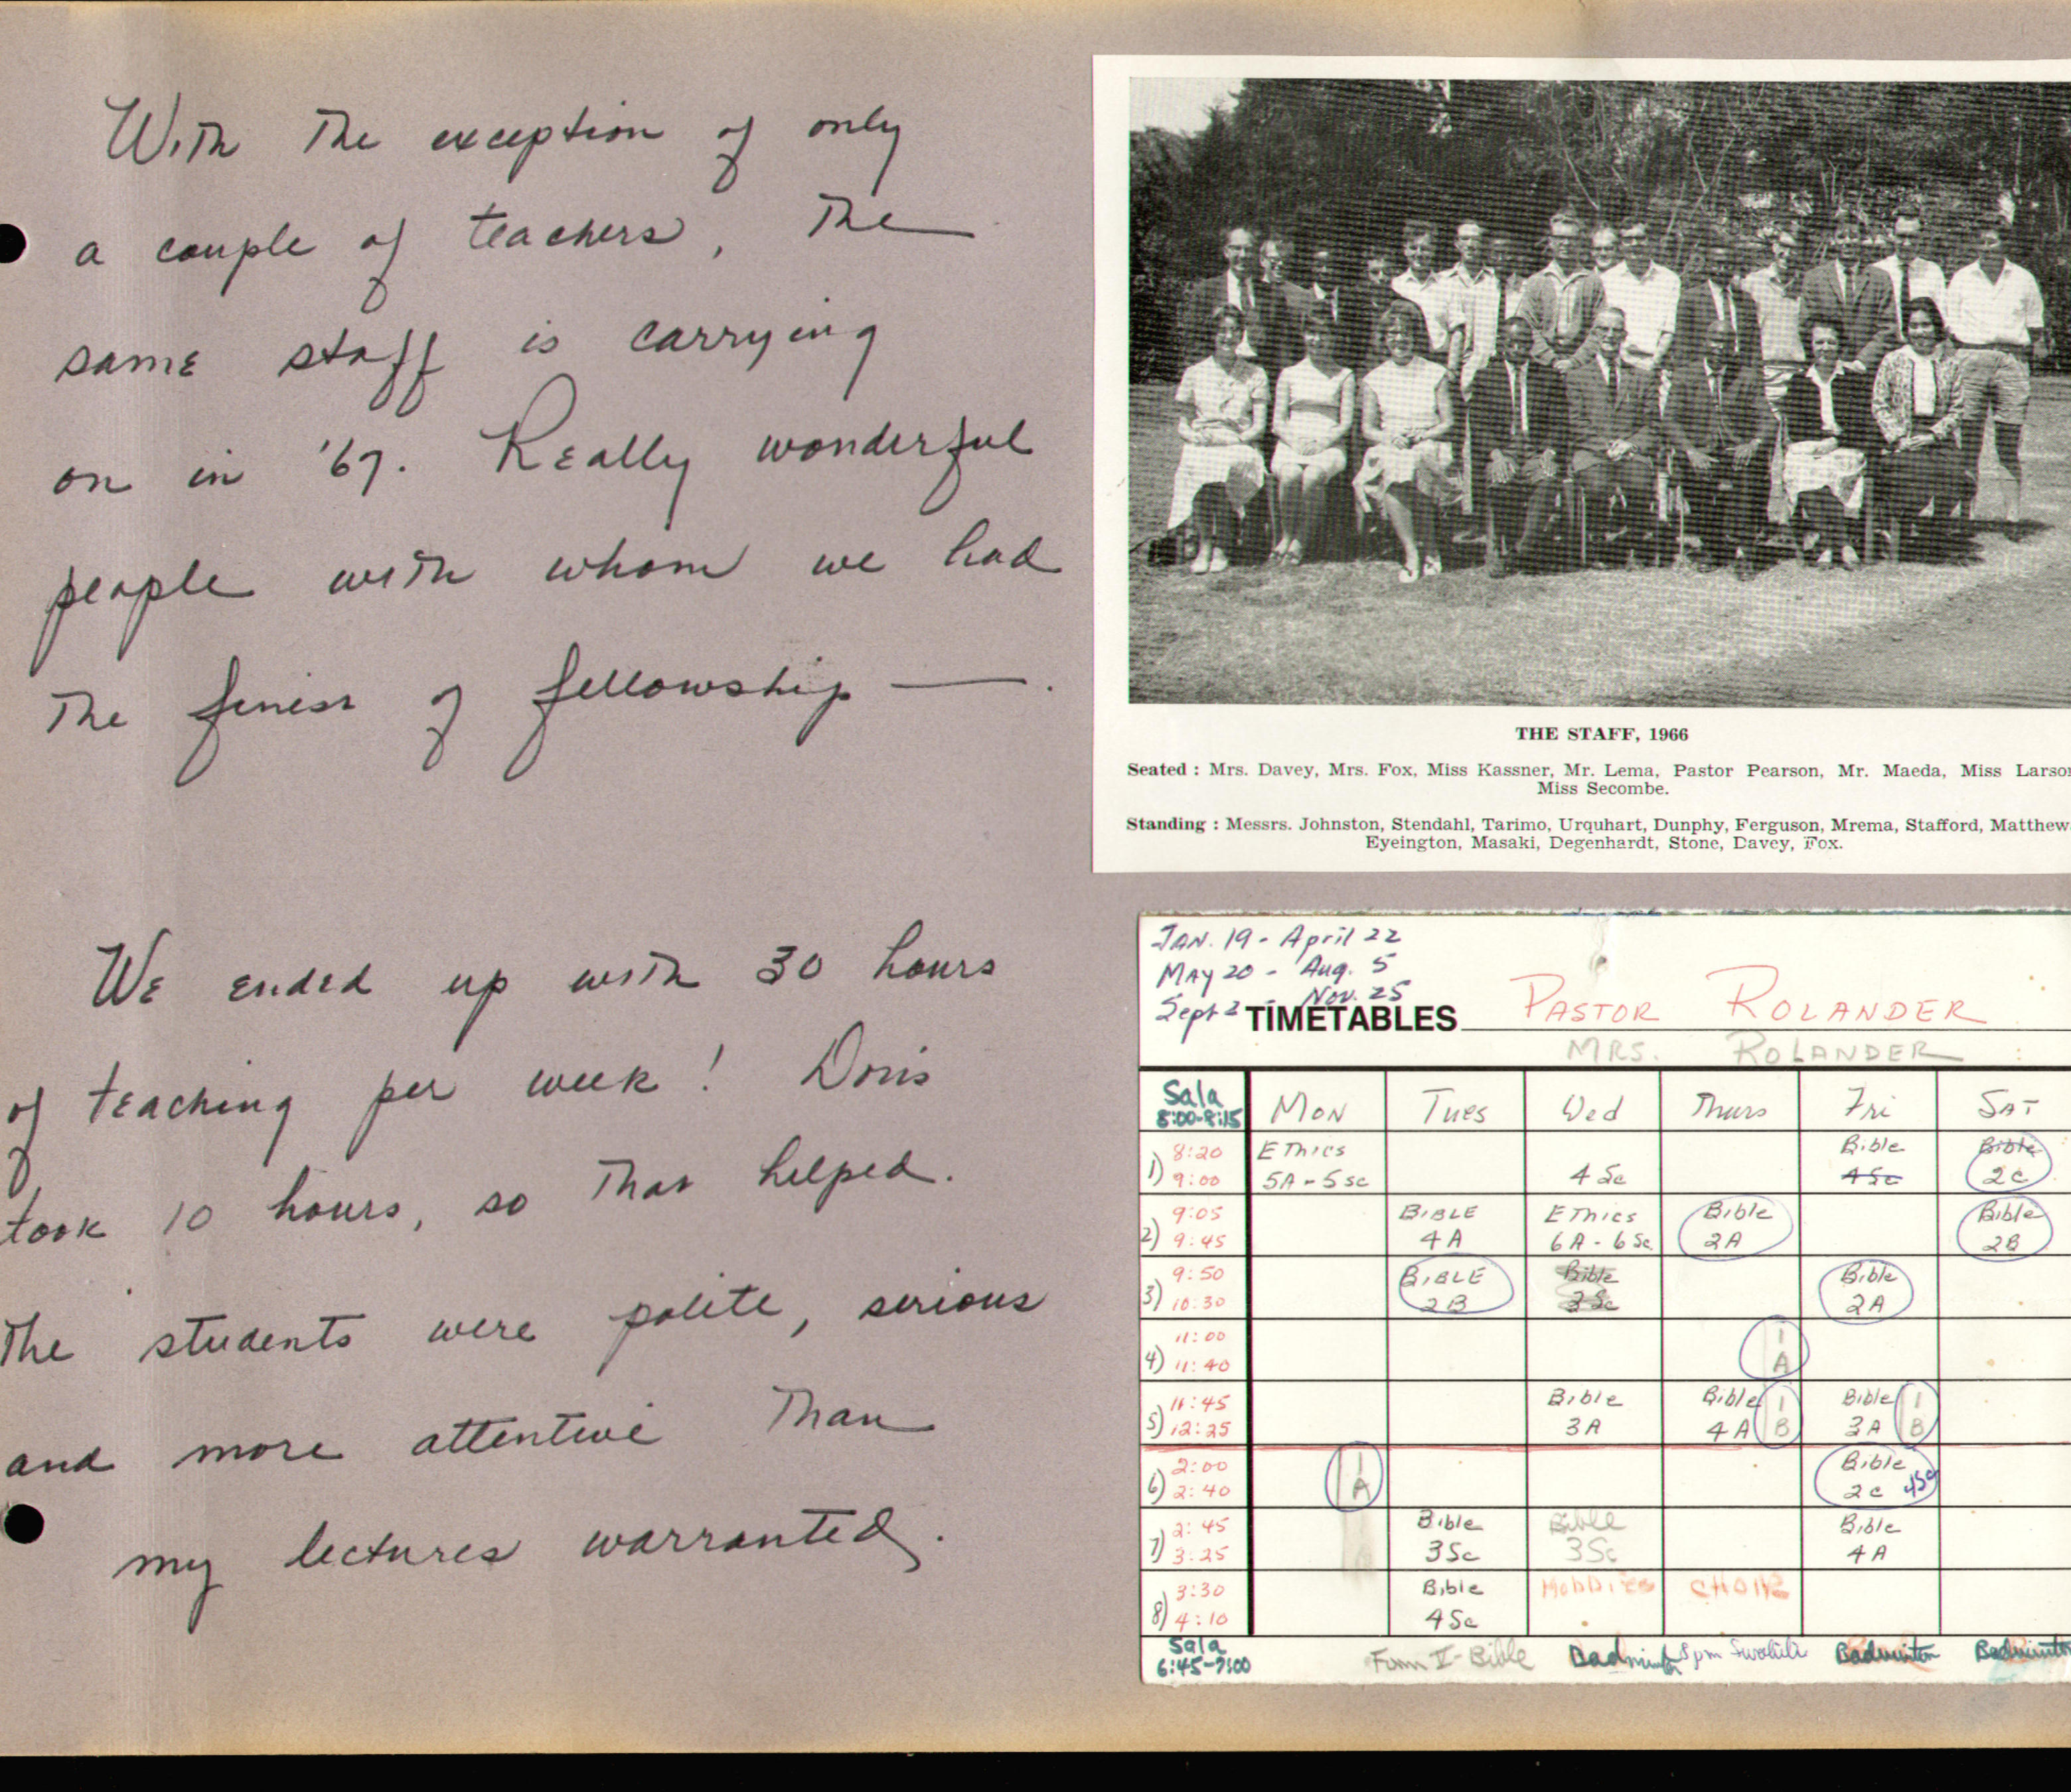 With the exception of only
a couple of teachers, the
same staff is carrying
on in '67. Really wonderful
people with whom we had
the finest of fellowship —.
We ended up with 30 hours
of teaching per week! Doris
took 10 hours, so that helped.
The students were polite, serious
and more attentive than
my lectures warranted.
THE STAFF, 1966
Seated : Mrs. Davey, Mrs. Fox, Miss Kassner, Mr. Lema, Pastor Pearson, Mr. Maeda, Miss Larson
Miss Secombe.
Standing : Messrs. Johnston, Stendahl, Tarimo, Urquhart, Dunphy, Ferguson, Mrema, Stafford, Matthew
Eyeington, Masaki, Degenhardt, Stone, Davey, Fox.
JAN. 19 - April 22
MAY 20 - Aug. 5
Sept 2 - Nov. 25
TIMETABLES PASTOR ROLANDER
MRS. ROLANDER
Sala
8:00-8:15 MON TUES Wed Thurs Fri SAT
1) 8:20 Ethics Bible Bible
9:00 5A - 5 Sc 4 Sc 4 Sc 2C
2) 9:05 BIBLE Ethics Bible Bible
9:45 4A 6A - 6 Sc. 2A 2B
3) 9:50 BIBLE Bible Bible
10:30 2B 2A
4) 11:00 1
11:40 A
5) 11:45 Bible Bible 1 Bible 1
12:25 3A 4A B 3A B
6) 2:00 1 Bible
2:40 A 2C 4Sc
7) 2:45 Bible Bible Bible
3:25 3Sc 3Sc 4A
8) 3:30 Bible Hobbies CHOIR
4:10 4Sc
Sala
6:45-7:00 Form V - Bible Badminton 8pm Swahili Badminton Badminton